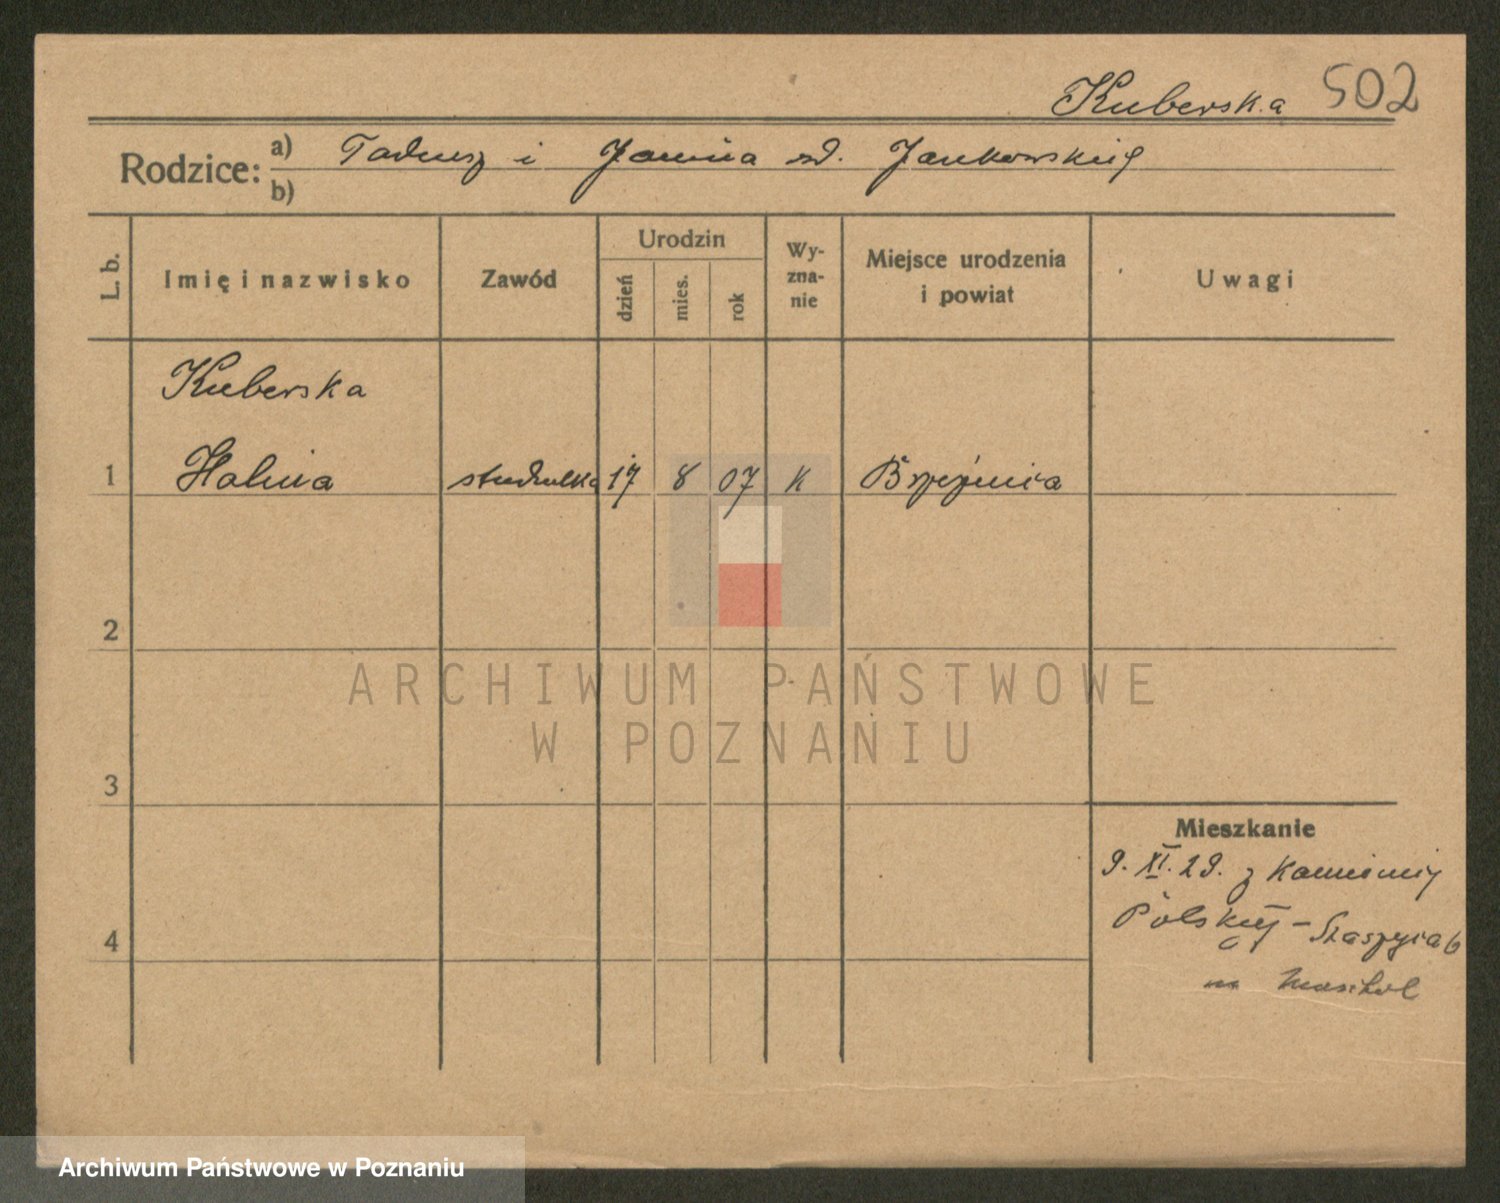 Kuberska 502
Rodzice: a) Tadeusz i Janina zd. Jankowskiej
b)
L. b. Imię i nazwisko Zawód Urodzin dzień mies. rok Wy-zna-nie Miejsce urodzenia i powiat Uwagi
Kuberska
1 Halina studentka 17 8 07 K
2
ARCHIWUM PAŃSTWOWE
W POZNANIU
3
Mieszkanie
9. XI. 29. z Kamionny
4 Polskiej - Staszyca 6
Archiwum Państwowe w Poznaniu